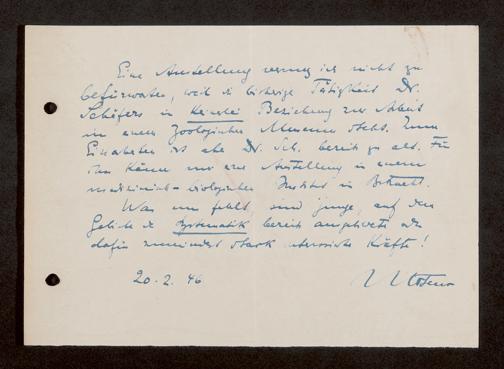 Eine Anstellung vermag ich nicht zu
befürworten, weil die bisherige Tätigkeit Dr.
Schäfers in keinerlei Beziehung zur Arbeit
in einem Zoologischen Museum steht. Zum
Einarbeiten ist aber Dr. Sch. bereits zu alt. Für
ihn käme nur eine Anstellung in einem
medizinisch-biologischen Institut in Betracht.
Was uns fehlt, sind junge, auf dem
Gebiete der Systematik bereits ausgebildete oder
dafür zumindest stark interessierte Kräfte!
20.2.46